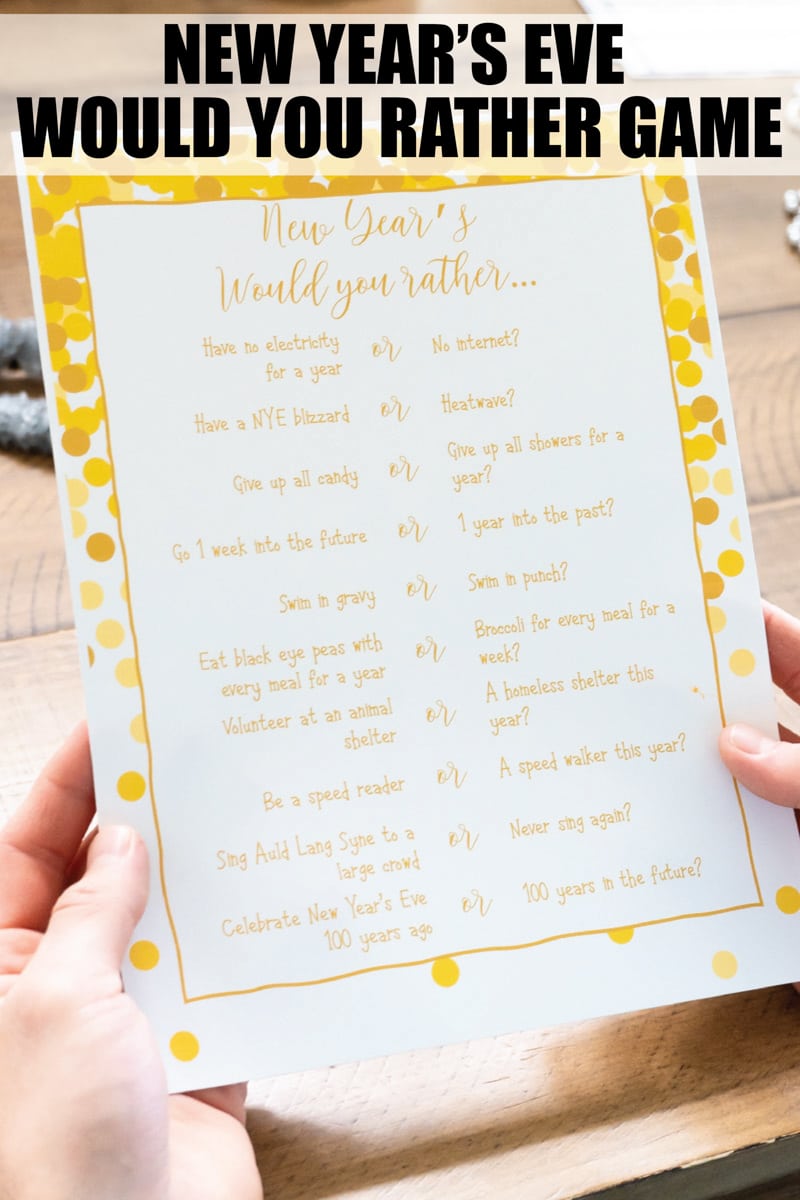 NEW YEAR'S EVE
WOULD YOU RATHER GAME
New Year's
Would you rather...
Have no electricity for a year or No internet?
Have a NYE blizzard or Heatwave?
Give up all candy or Give up all showers for a year?
Go 1 week into the future or 1 year into the past?
Swim in gravy or Swim in punch?
Eat black eye peas with every meal for a year or Broccoli for every meal for a week?
Volunteer at an animal shelter or A homeless shelter this year?
Be a speed reader or A speed walker this year?
Sing Auld Lang Syne to a large crowd or Never sing again?
Celebrate New Year's Eve 100 years ago or 100 years in the future?